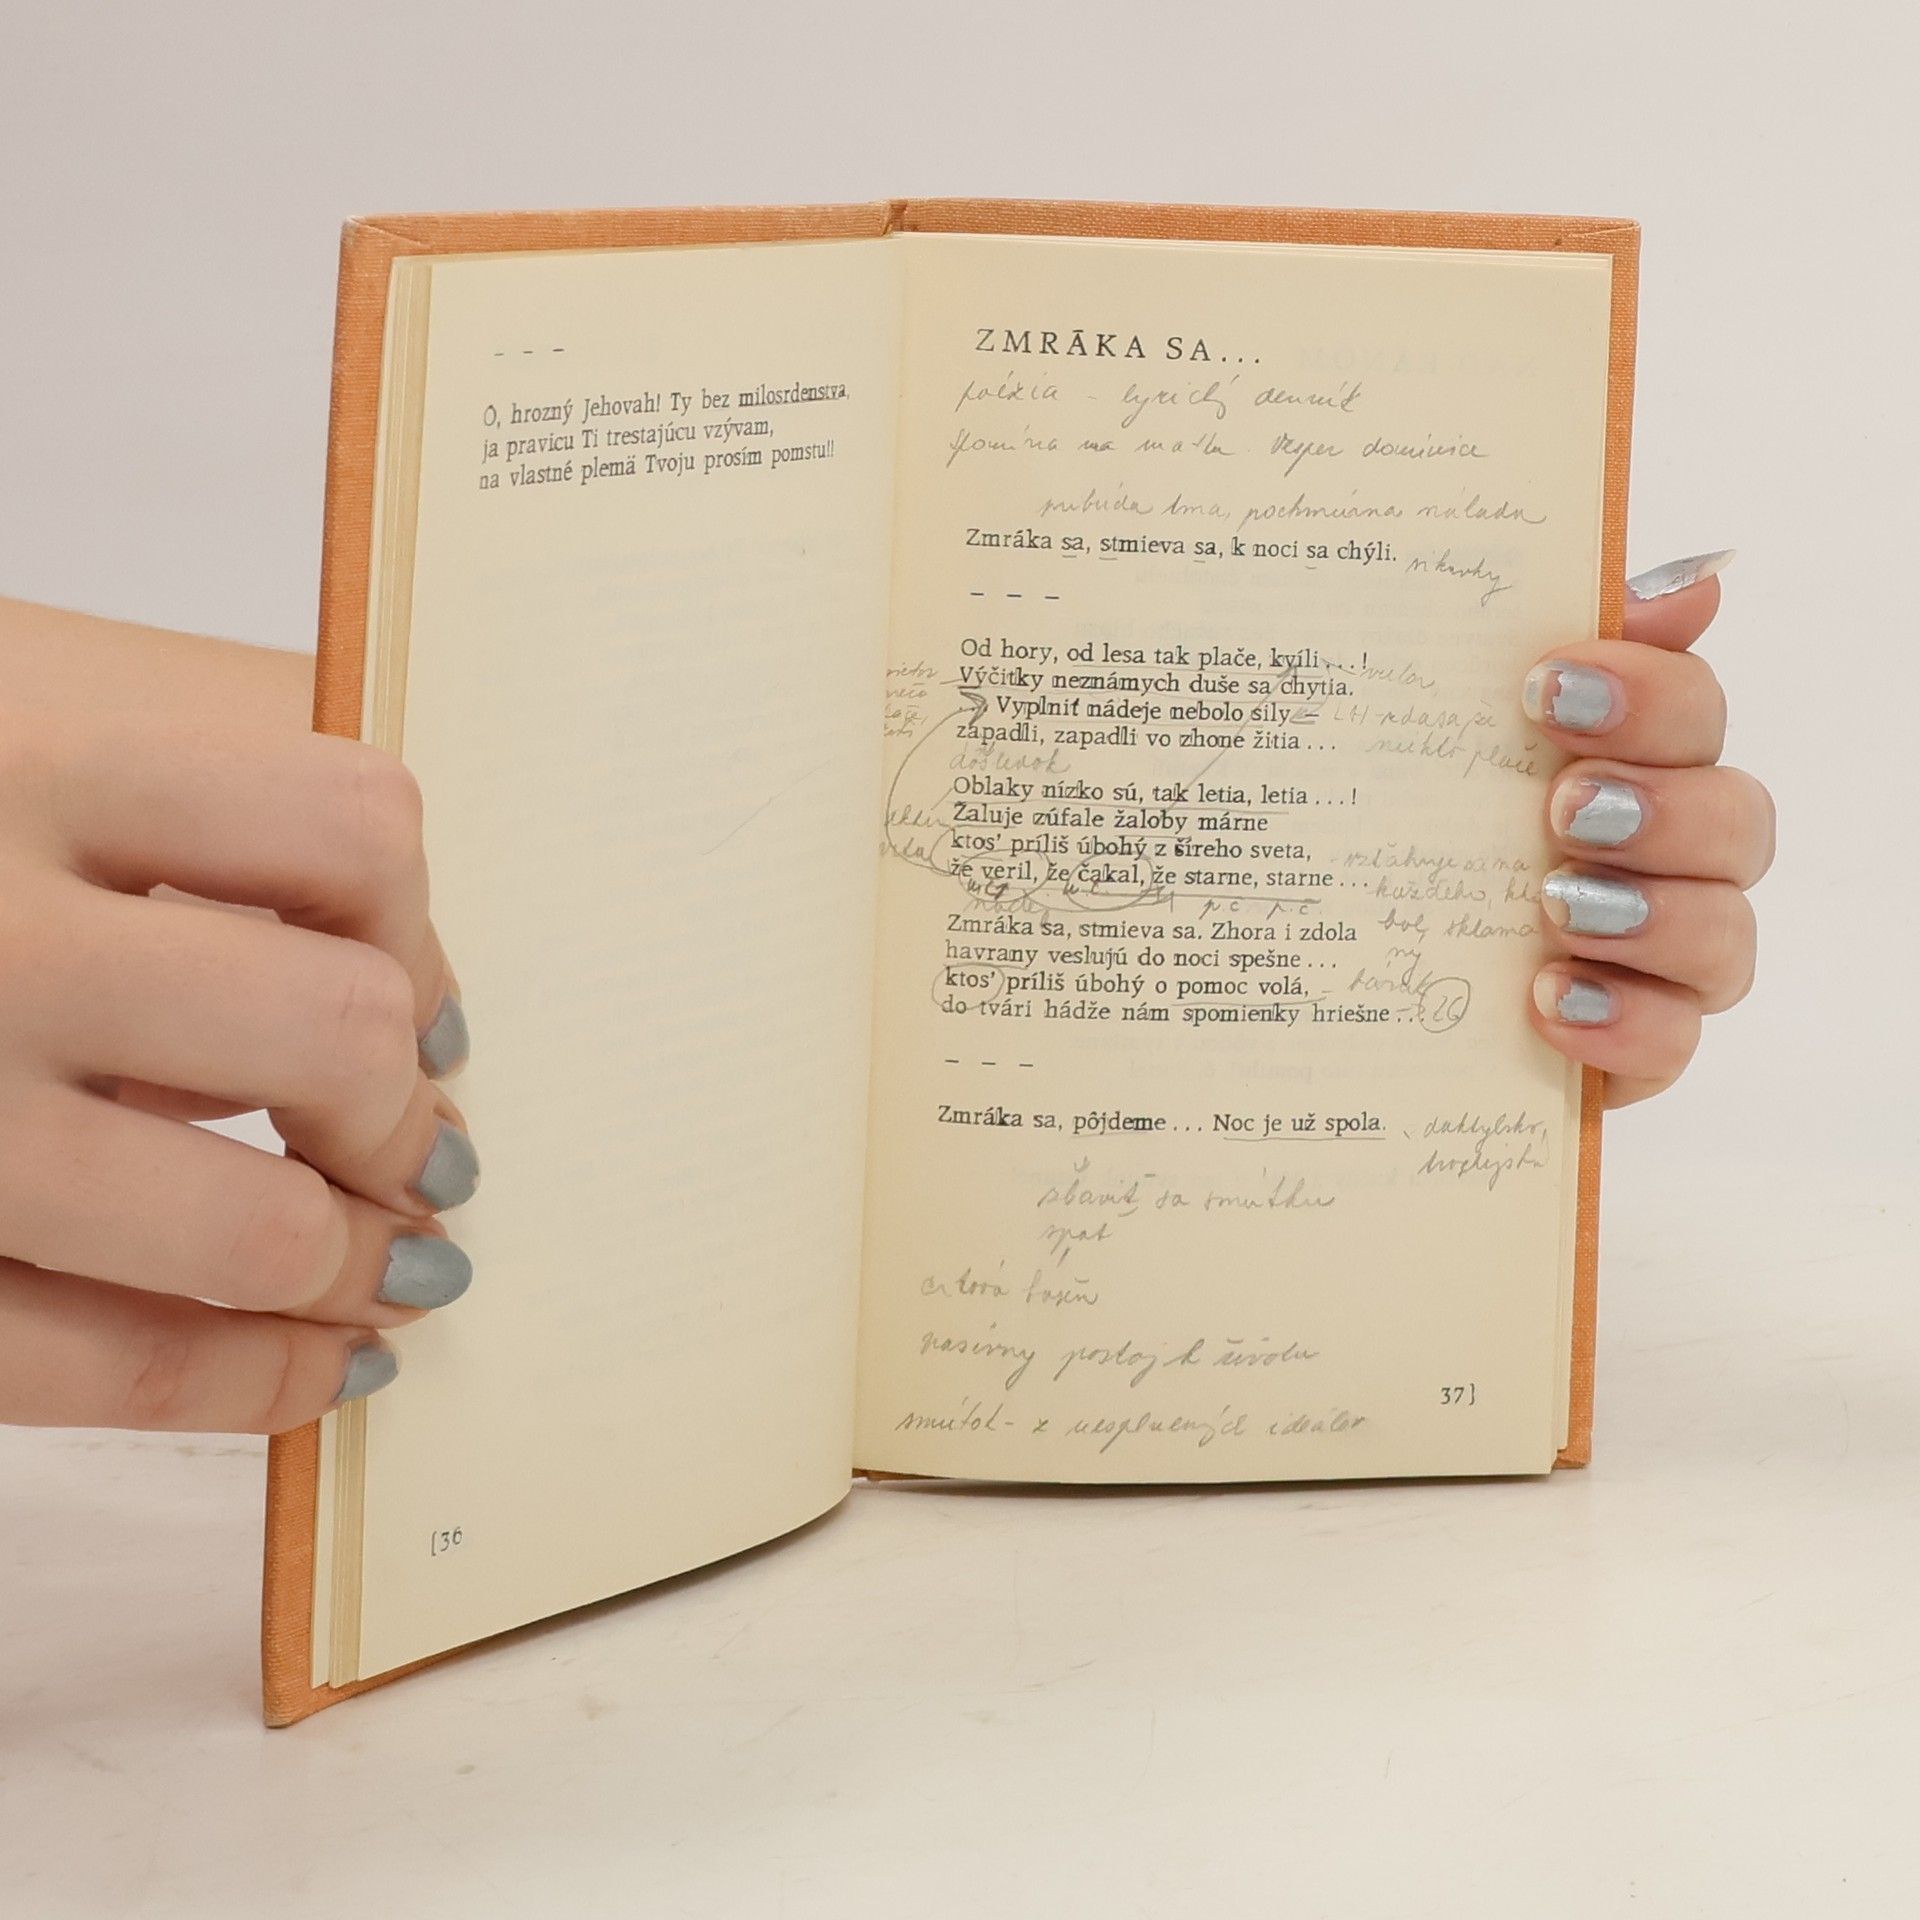 – – –
O, hrozný Jehovah! Ty bez milosrdenstva,
ja pravicu Ti trestajúcu vzývam,
na vlastné plemä Tvoju prosím pomstu!!
[36
ZMRÁKA SA...
poézia - lyrický denník
Spomína na matku. Vesper dominicae
pribúda tma, pochmúrna nálada
Zmráka sa, stmieva sa, k noci sa chýli.
sikavky
– – –
Od hory, od lesa tak plače, kvíli...!
Výčitky neznámych duše sa chytia.
... Vyplniť nádeje nebolo sily –
LH - zdá sa, že
zapadli, zapadli vo zhone žitia...
niekto plače
Oblaky nízko sú, tak letia, letia...!
Žaluje zúfale žaloby márne
ktos' príliš úbohý z šíreho sveta,
že veril, že čakal, že starne, starne...
vzťahuje sa na
každého, kto
bol sklama
ný
p.č. p.č.
Zmráka sa, stmieva sa. Zhora i zdola
havrany veslujú do noci spešne...
ktos' príliš úbohý o pomoc volá, –
básnik
do tvári hádže nám spomienky hriešne...
26
– – –
Zmráka sa, pôjdeme... Noc je už spola.
daktylsko,
trochejská
zbaviť sa smútku
spať
citová báseň
pasívny postoj k životu
smútok - z nesplnených ideálov
37]